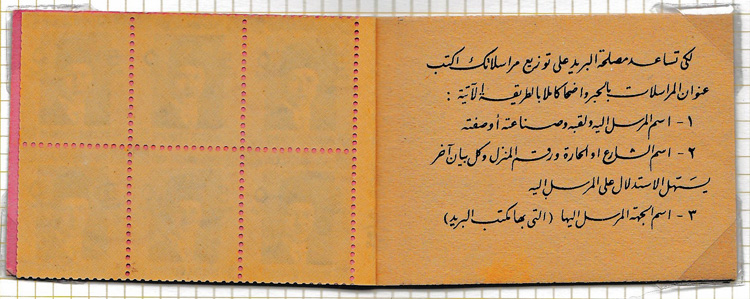 لكى تساعد مصلحة البريد على توزيع مراسلاتك اكتب
عنوان المراسلات بالحبر واضحا كاملا بالطريقة الآتية :
١ - اسم المرسل اليه ولقبه وصناعته أو صفته
٢ - اسم الشارع او الحارة ورقم المنزل وكل بيان آخر
يسهل الاستدلال على المرسل اليه
٣ - اسم الجهة المرسل اليها (التى بها مكتب البريد)